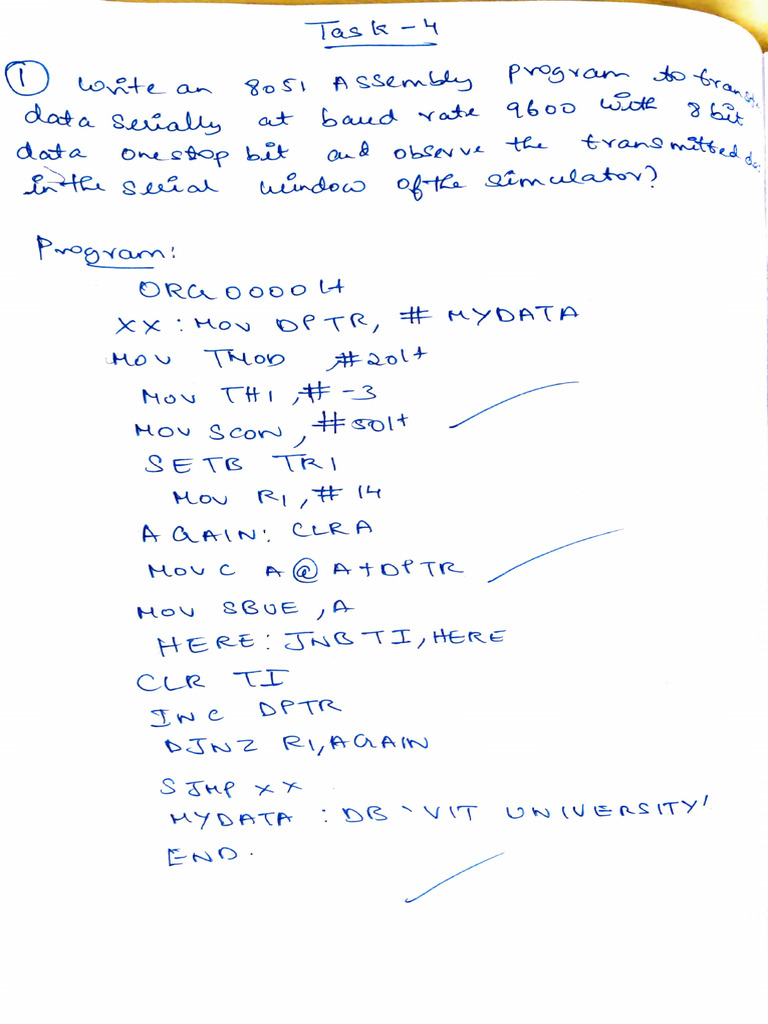 Task - 4
① Write an 8051 Assembly program to
data serially at baud rate 9600 with 8 bit
data one stop bit and observe the transmitted
in the serial window of the simulator?
Program:
ORG 0000H
XX : MOV DPTR, # MYDATA
MOV TMOD ,#20H
MOV TH1 ,# -3
MOV SCON, #50H
SETB TR1
MOV R1, # 14
AGAIN: CLRA
MOVC A @ A+DPTR
MOV SBUE ,A
HERE: JNB TI, HERE
CLR TI
INC DPTR
DJNZ R1, AGAIN
SJMP XX
MYDATA : DB 'VIT UNIVERSITY'
END.